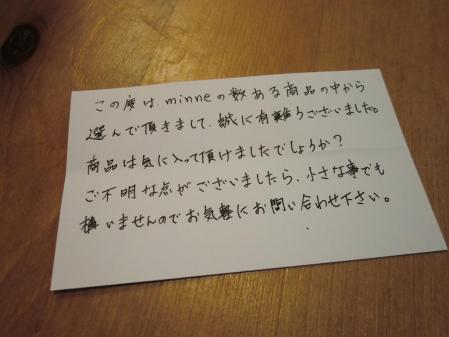 この度は、minneの数ある商品の中から
選んで頂きまして、誠に有難うございました。
商品は気に入って頂けましたでしょうか?
ご不明な点がございましたら、小さな事でも
構いませんのでお気軽にお問い合わせ下さい。